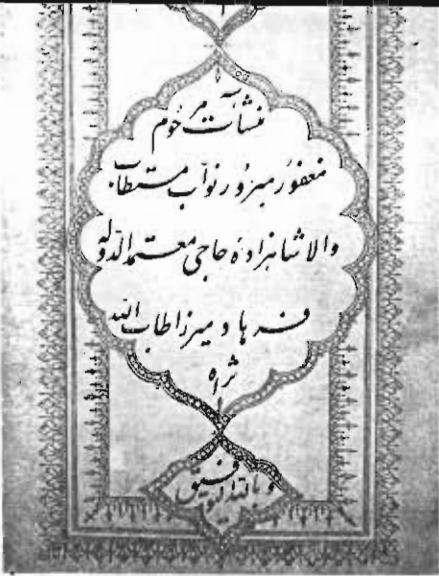 منشآت مرحوم
مغفور مبرور نواب مستطاب
والا شاهزاده حاجی معتمدالدوله
فرهاد میرزا طاب الله
ثراه
و بالله التوفیق